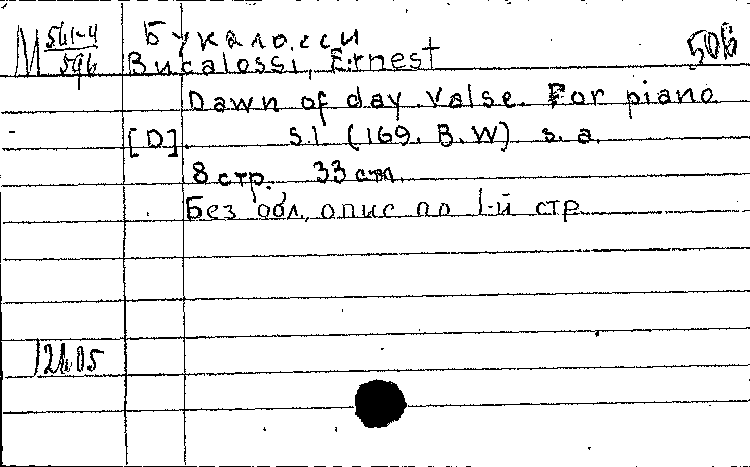 М 561-4/596
Букалосси
50б
Bucalossi, Ernest
Dawn of day. Valse. For piano
[D]. s.l. (169. B.W) s. a.
8 стр., 33 см.
Без обл., опис по 1-й стр
12605